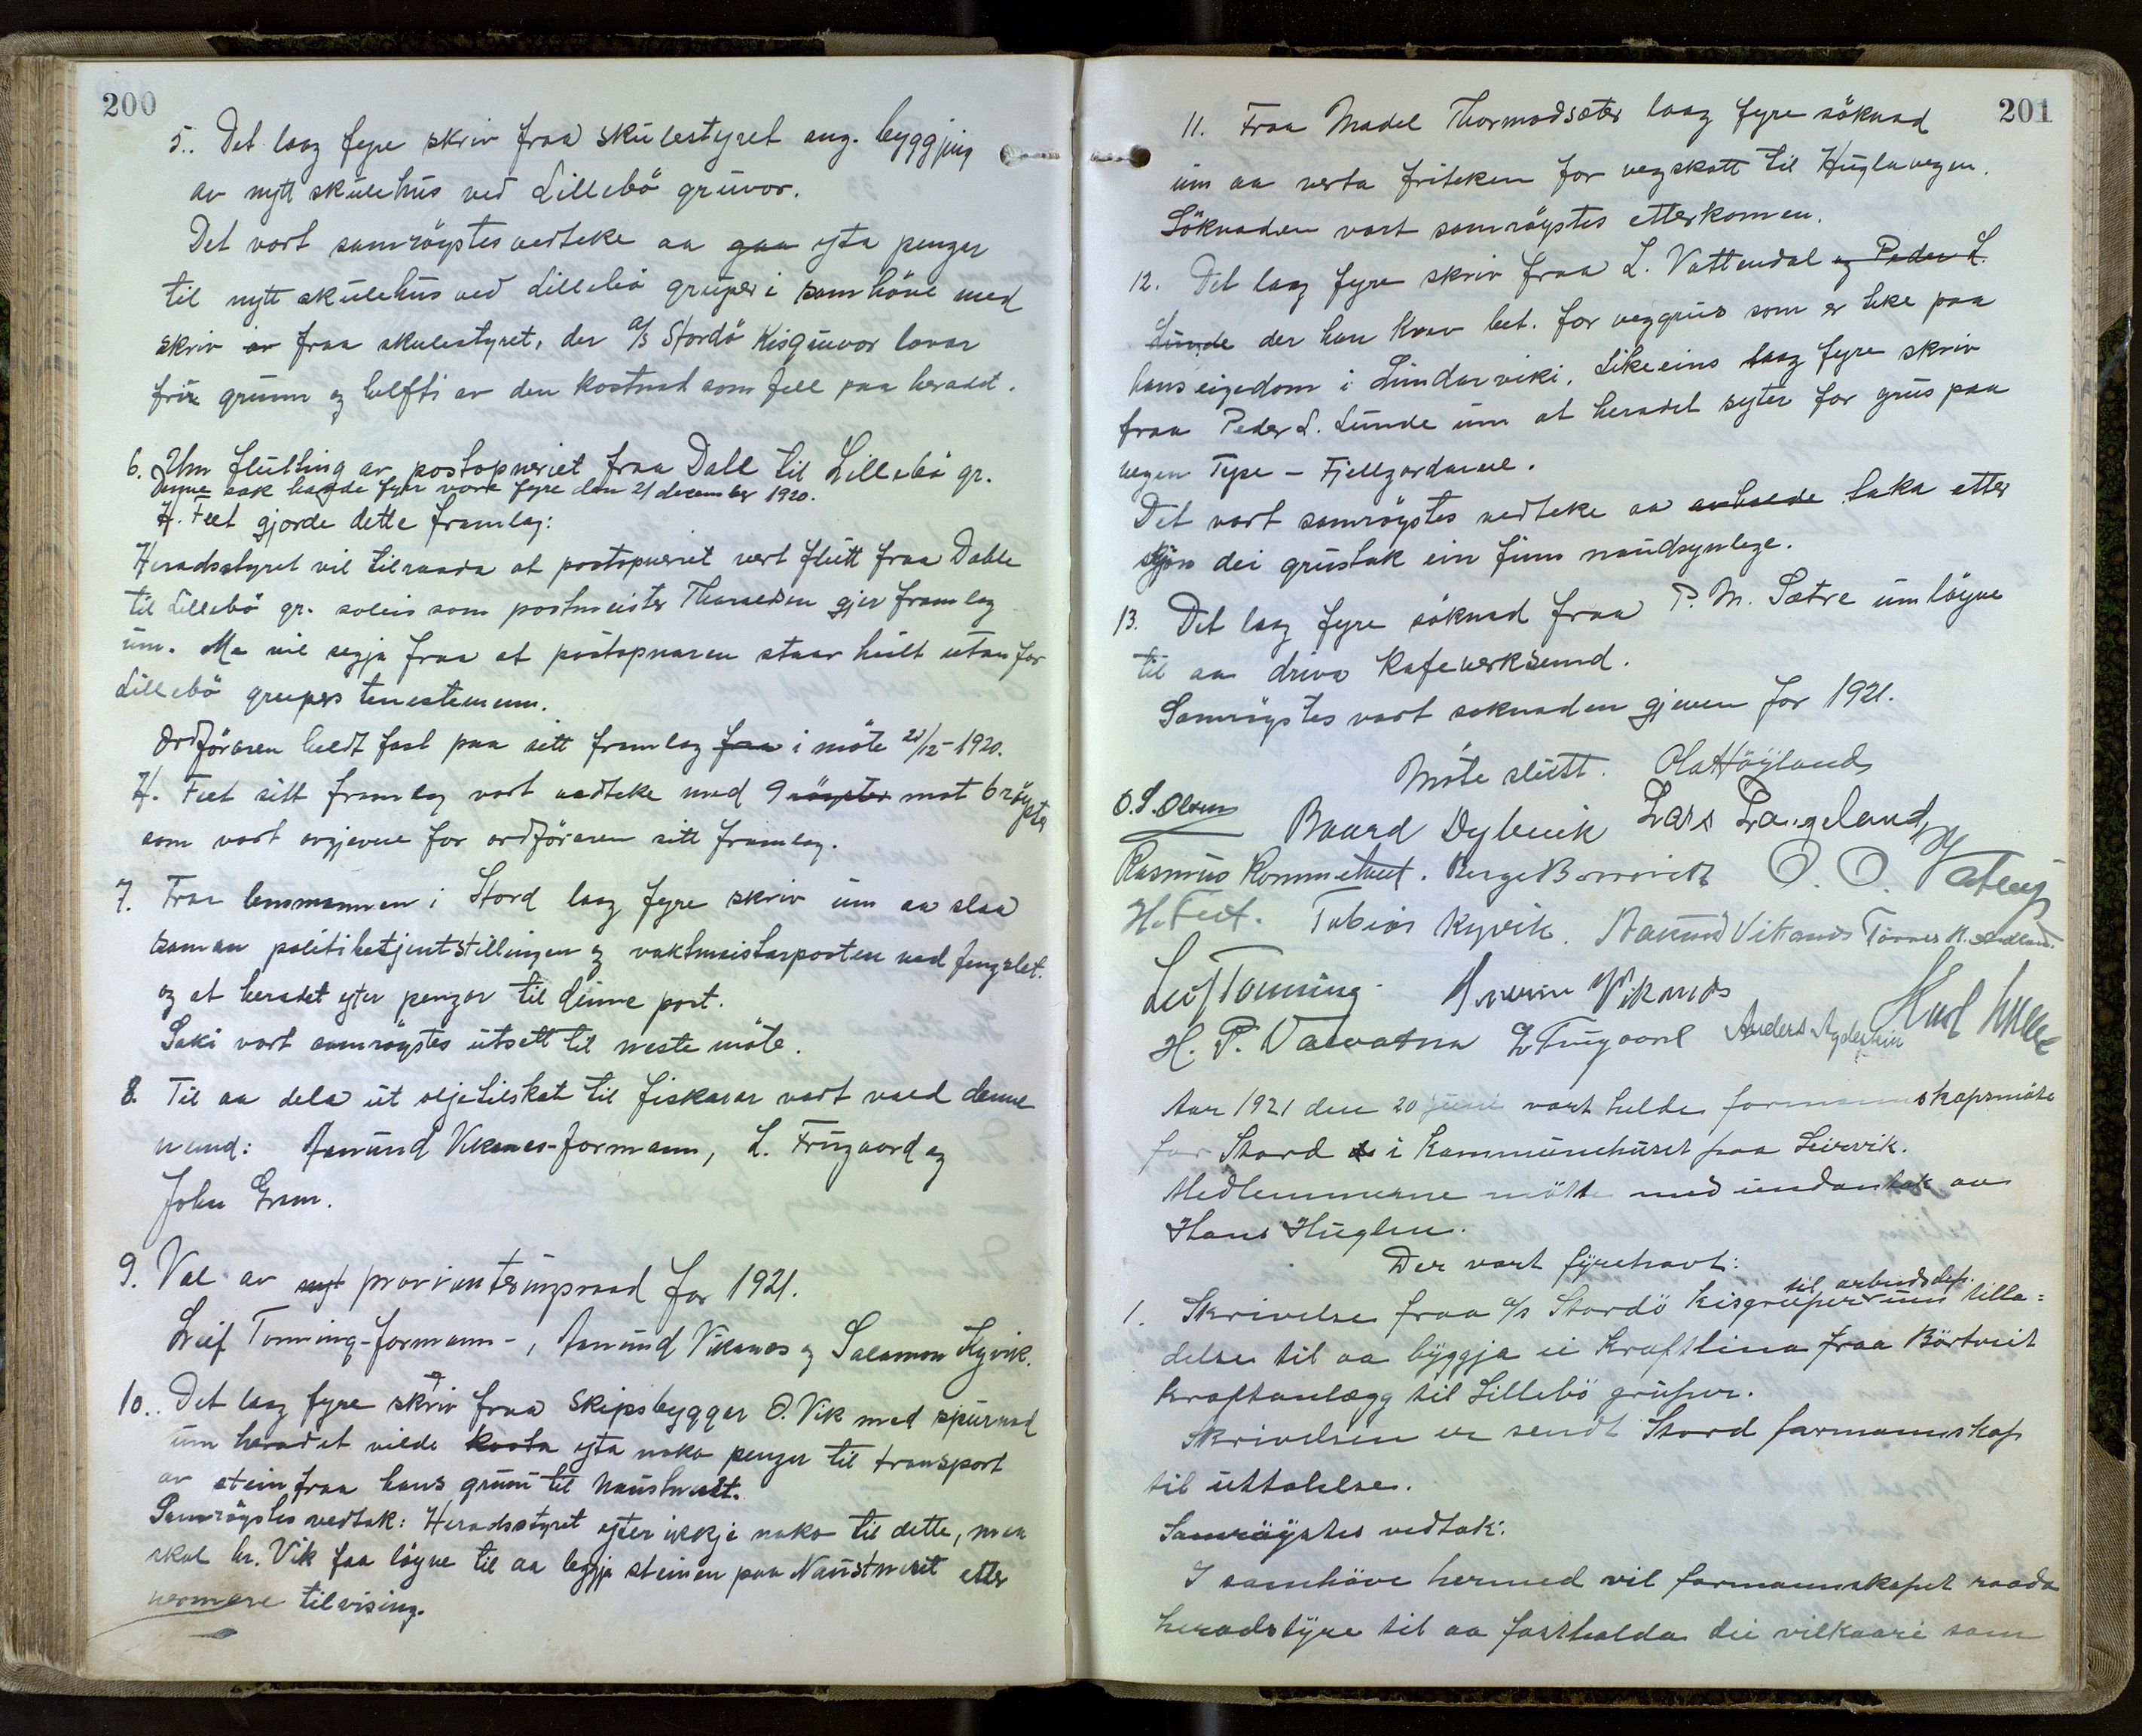 200
5. Det laag fyre skriv fraa skulestyret ang. byggjing
av nytt skulehus ved Lillebö gruvor.
Det vart samröystes vedteke aa gaa yta pengar
til nytt skulehus ved Lillebö gruper i samhöve med
skriv av fraa skulestyret, der A/S Stordö Kisgruvor lovar
frie grunn og helfti av den kostnad som fell paa heradet.
6. Um flutting av postopneriet fraa Dall til Lillebö gr.
Denne sak hadde fyrr vore fyre den 21 december 1920.
H. Feet gjorde dette framlag:
Heradsstyret vil tilraada at postopneriet vert flutt fraa Dahle
til Lillebö gr. soleis som postmeister Thoraldsen gjer framlag
um. Me vil segja fraa at postopnaren staar heilt utanfor
Lillebö grupers tenestemenn.
Ordföraren heldt fast paa sitt framlag fraa i möte 21/12-1920.
H. Feet sitt framlag vart vedteke med 9 röyster mot 6 röyster
som vart avgjevne for ordföraren sitt framlag.
7. Fraa lensmannen i Stord laag fyre skriv um aa slaa
saman politibetjentstillingen og vaktmeistarposten ved fengslet.
og at heradet yter pengar til denne post.
Saki vart samröystes utsett til neste möte.
8. Til aa dela ut oljetilskot til fiskarar vart vald denne
nemnd: Aamund Vikanes-formann, L. Frugaard og
John Grov.
9. Val av nytt provianteringsraad for 1921.
Leif Tonning-formann-, Aamund Vikanes og Salamon Kyvik.
10. Det laag fyre skriv fraa Skipsbyggar O. Vik med spurnad
um heradet vilde kosta yta noko pengar til transport
av stein fraa hans grunn til Naustneset.
Samröystes vedtak: Heradsstyret yter ikkje noko til dette, men
skal hr. Vik faa löyve til aa leggja steinen paa Naustneset etter
nermare tilvising.
201
11. Fraa Madel Thormodsæter laag fyre söknad
um aa verta friteken for vegskatt til Huglavegen.
Söknaden vart samröystes etterkomen.
12. Det laag fyre skriv fraa L. Vattendal og Peder L.
Lunde der han krav bet. for veggrus som er teke paa
hans eigedom i Lundarviki. Likeeins laag fyre skriv
fraa Peder L. Lunde um at heradet syter for grus paa
vegen Tyse - Fjellgardane.
Det vart samröystes vedteke aa avhalde taka etter
skjön dei grustak ein finn naudsynlege.
13. Det laag fyre söknad fraa P. M. Sætre um löyve
til aa driva kafeverksemd.
Samröystes vart soknaden gjeven for 1921.
Möte slutt. Ola Höyland
O. S. Olsen Baard Dybvik Lars Langeland
Rasmus Rommetveit. Berge Borrevik O. O. Valleij
H. Feet. Tobias Kyvik. Aamund Vikanes Tönnes K. Adland
Leif Tonning Sverre Vikanes
H. P. Valvatna L Frugaard Anders Agdestein
Aar 1921 den 20 juni vart helde formannskapsmöte
for Stord i Kommunehuset paa Leirvik.
Medlemmerne mötte med undantak av
Hans Huglen.
Der vart fyrehavt:
til arbeidsdep.
1. Skrivelse fraa A/S Stordö Kisgruper um tilla=
delse til aa byggja ei kraftlina fraa Börtveit
kraftanlægg til Lillebö gruper.
Skrivelsen er sendt Stord formannskap
til uttalelse.
Samröystes vedtak:
I samhöve hermed vil formannskapet raada
heradstyre til aa fasthalda dei vilkaari som